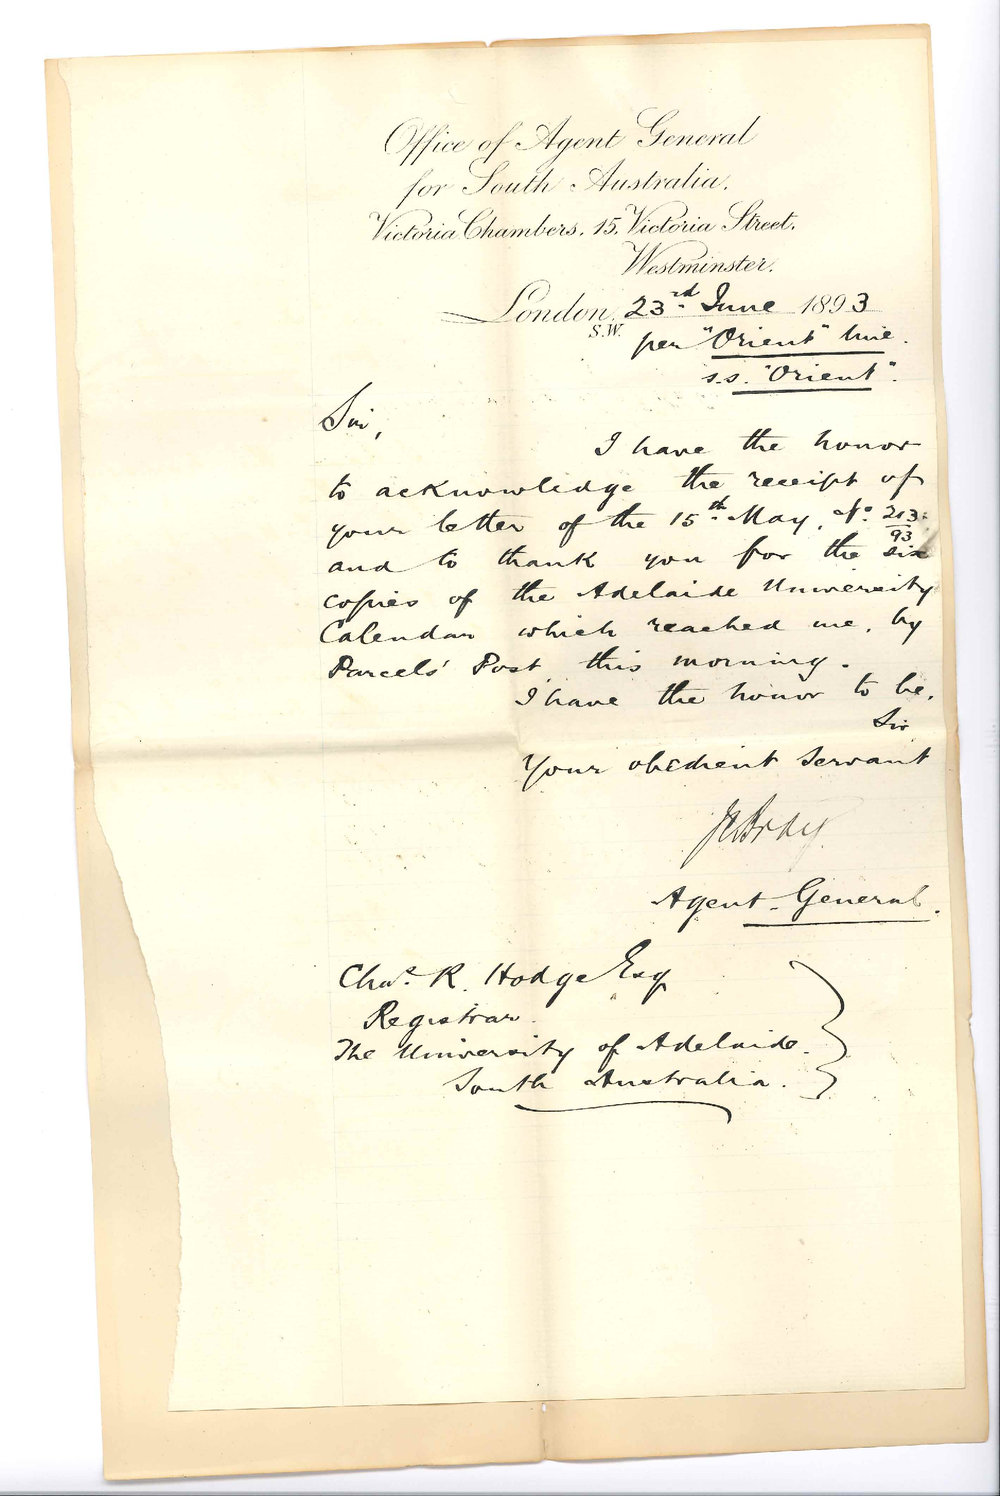 Office of Agent General
for South Australia.
Victoria Chambers, 15, Victoria Street,
Westminster.
London, 23rd June 1893
S.W.
per "Orient" line.
s.s. "Orient".
Sir,
I have the honor
to acknowledge the receipt of
your letter of the 15th May, No. 213/93
and to thank you for the six
copies of the Adelaide University
Calendar which reached me, by
Parcels' Post, this morning.
I have the honor to be,
Sir
Your obedient servant
JCBray
Agent-General.
Chas. R. Hodge Esq
Registrar.
The University of Adelaide.
South Australia.